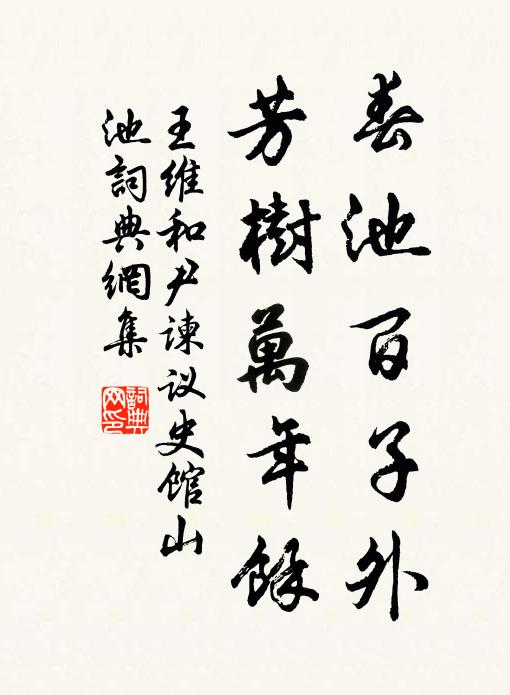 春池百子外
芳樹萬年餘
王維和尹諫议史館山
池詞典網集
詞典
网印